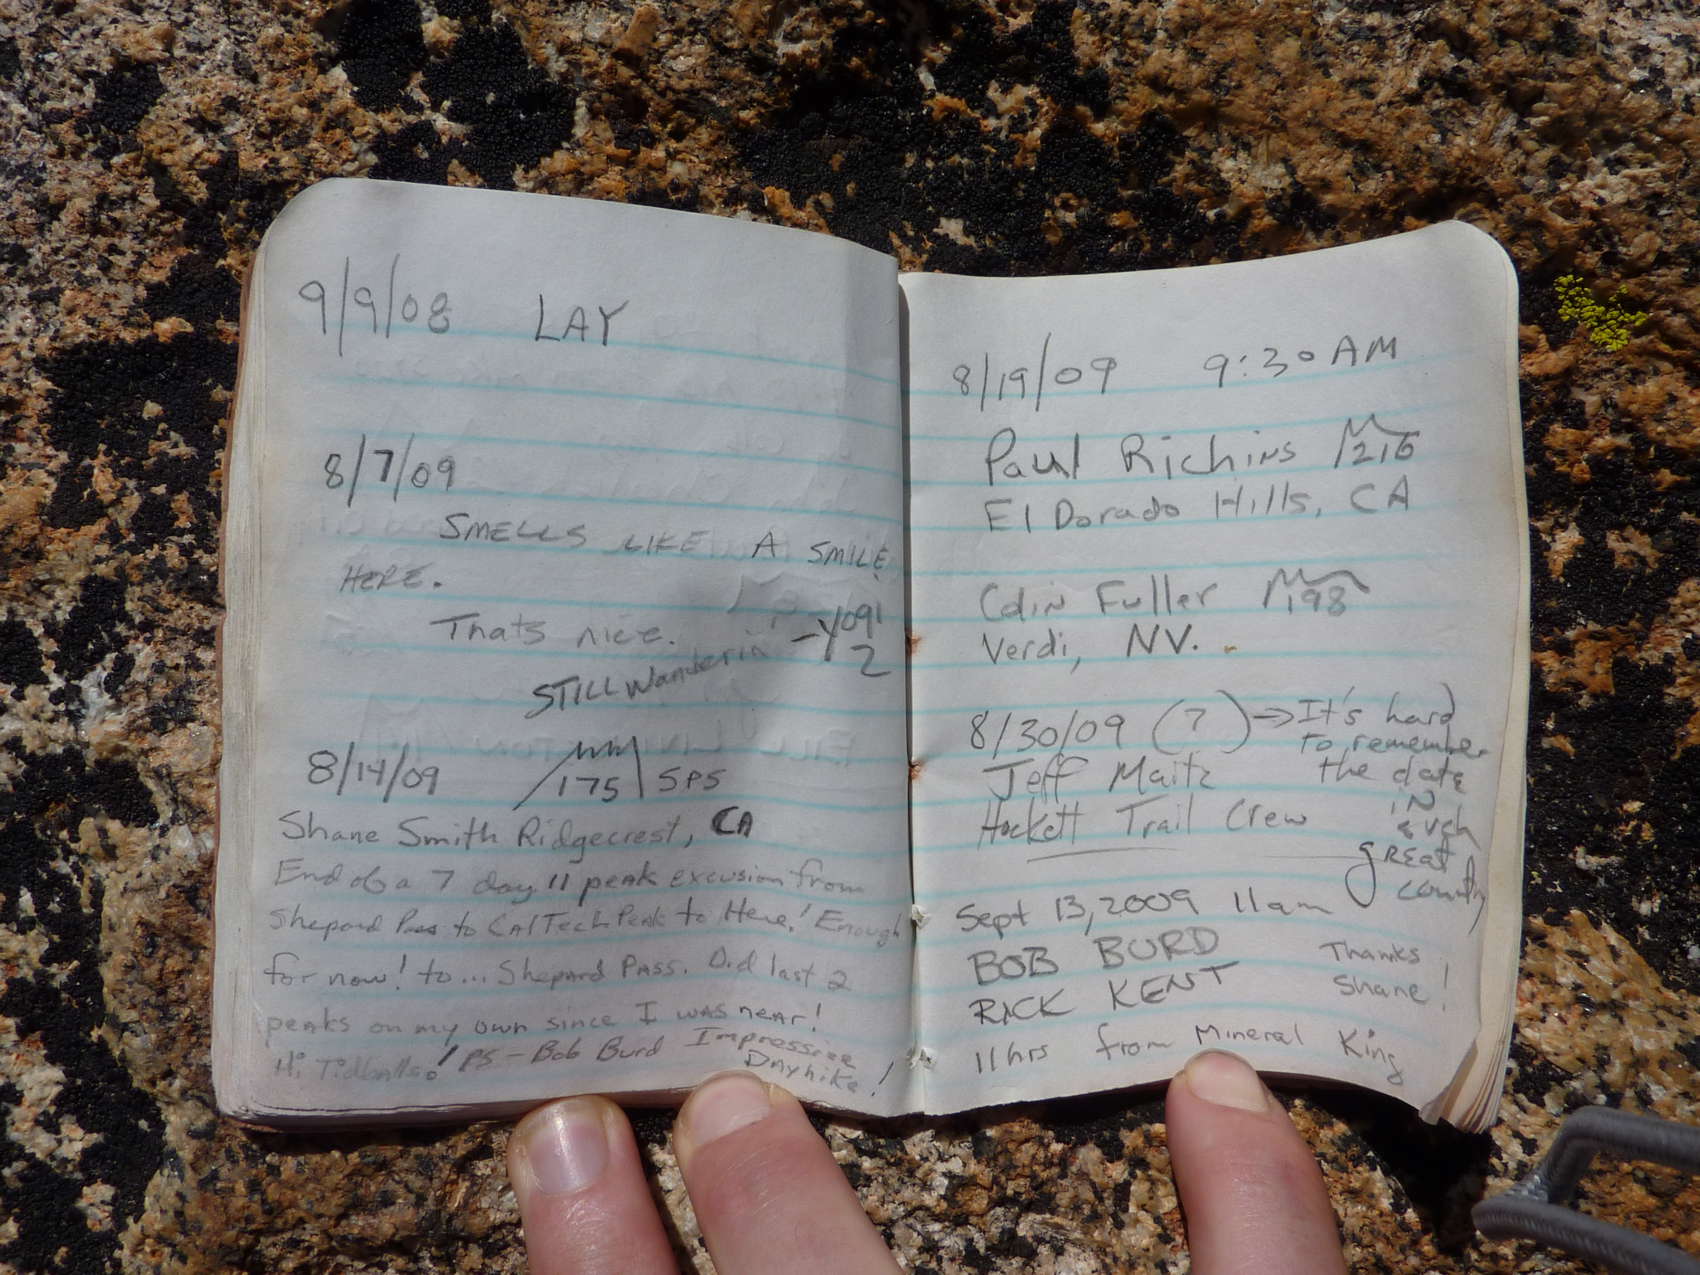 9/9/08 LAY
8/7/09
SMELLS LIKE A SMILE
HERE.
Thats nice.
STILL Wanderin
8/14/09 175 SPS
Shane Smith Ridgecrest, CA
End of a 7 day 11 peak excusion from
Shepard Pass to CalTech Peak to Here! Enough
for now! to... Shepard Pass. Did last 2
peaks on my own since I was near!
Hi Tidballs! PS - Bob Burd Impressive
Dayhike!
8/19/09 9:30 AM
Paul Richins 216
El Dorado Hills, CA
Colin Fuller 198
Verdi, NV.
8/30/09 (?) → It's hard
to remember
the date
in such
great
country
Jeff Maitz
Hockett Trail Crew
Sept 13, 2009 11am
BOB BURD
RICK KENT
Thanks
Shane!
11 hrs from Mineral King